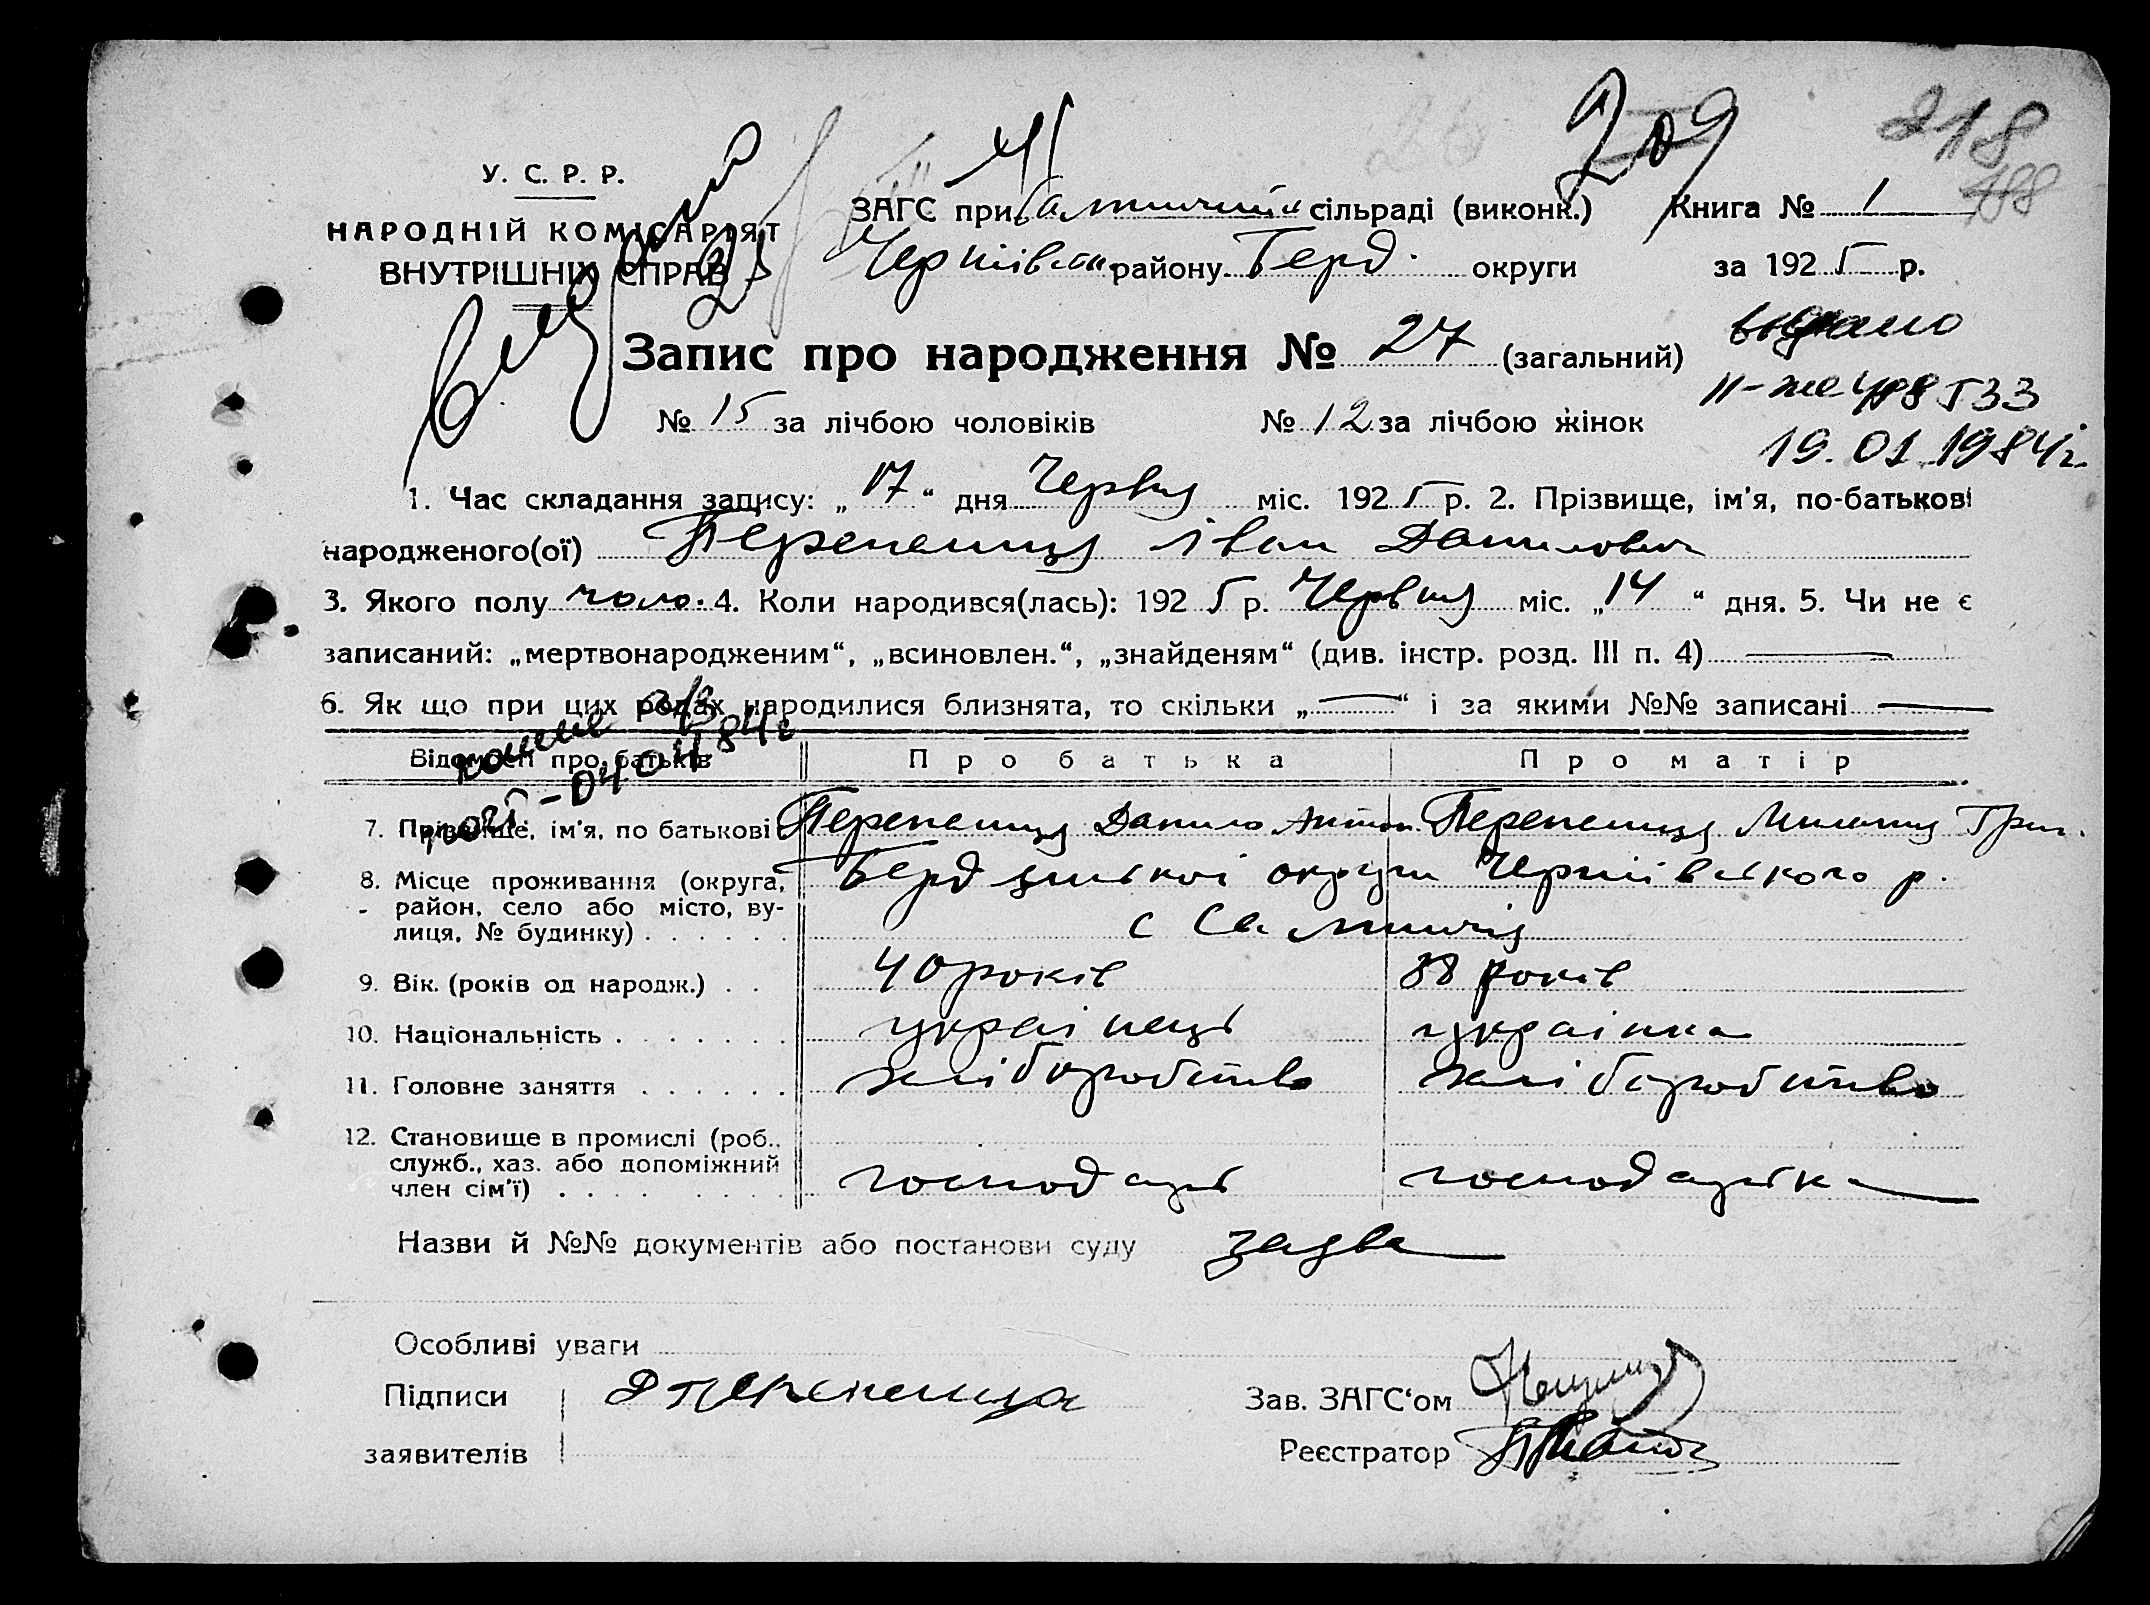 209
218
188
У. С. Р. Р.
ЗАГС при сільраді (виконк.) Книга № 1
НАРОДНІЙ КОМІСАРІЯТ
ВНУТРІШНІХ СПРАВ
району Берд. округи за 1925 р.
Запис про народження № 27 (загальний)
видано
II-же 488533
№ 15 за лічбою чоловіків № 12 за лічбою жінок
19.01.1984г.
1. Час складання запису: „17“ дня Червця міс. 1925 р. 2. Прізвище, ім'я, по-батькові
народженого(ої) Перепелиця Іван Данилович
3. Якого полу чолов. 4. Коли народився(лась): 1925 р. Червця міс. „14“ дня. 5. Чи не є
записаний: „мертвонародженим“, „всиновлен.“, „знайденям“ (див. інстр. розд. III п. 4)
6. Як що при цих родах народилися близнята, то скільки „—“ і за якими №№ записані —
Відомості про батьків Про батька Про матір
04 04 84г
7. Прізвище, ім'я, по батькові Перепелиця Данило Антон. Перепелиця Григ.
8. Місце проживання (округа, район, село або місто, вулиця, № будинку) . . . . . . Бердичівскої округи р.
с
9. Вік. (років од народж.) . . 40 років 38 років
10. Національність . . . . . . . українець українка
11. Головне заняття . . . . . . хліборобство хліборобство
12. Становище в промислі (роб., служб., хаз. або допоміжний член сім'ї) . . . . господарь господарька
Назви й №№ документів або постанови суду заява
Особливі уваги
Підписи Д Перепелица Зав. ЗАГС'ом
заявителів Реєстратор